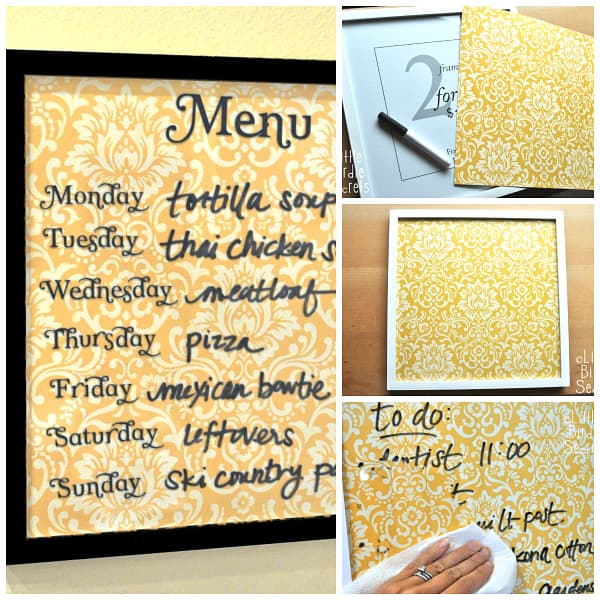 Menu
Monday tortilla soup
Tuesday thai chicken s
Wednesday meatloaf
Thursday pizza
Friday mexican bowtie
Saturday leftovers
Sunday ski country p
2
fram
for
to do:
dentist 11:00
post
kona cotton
gardens